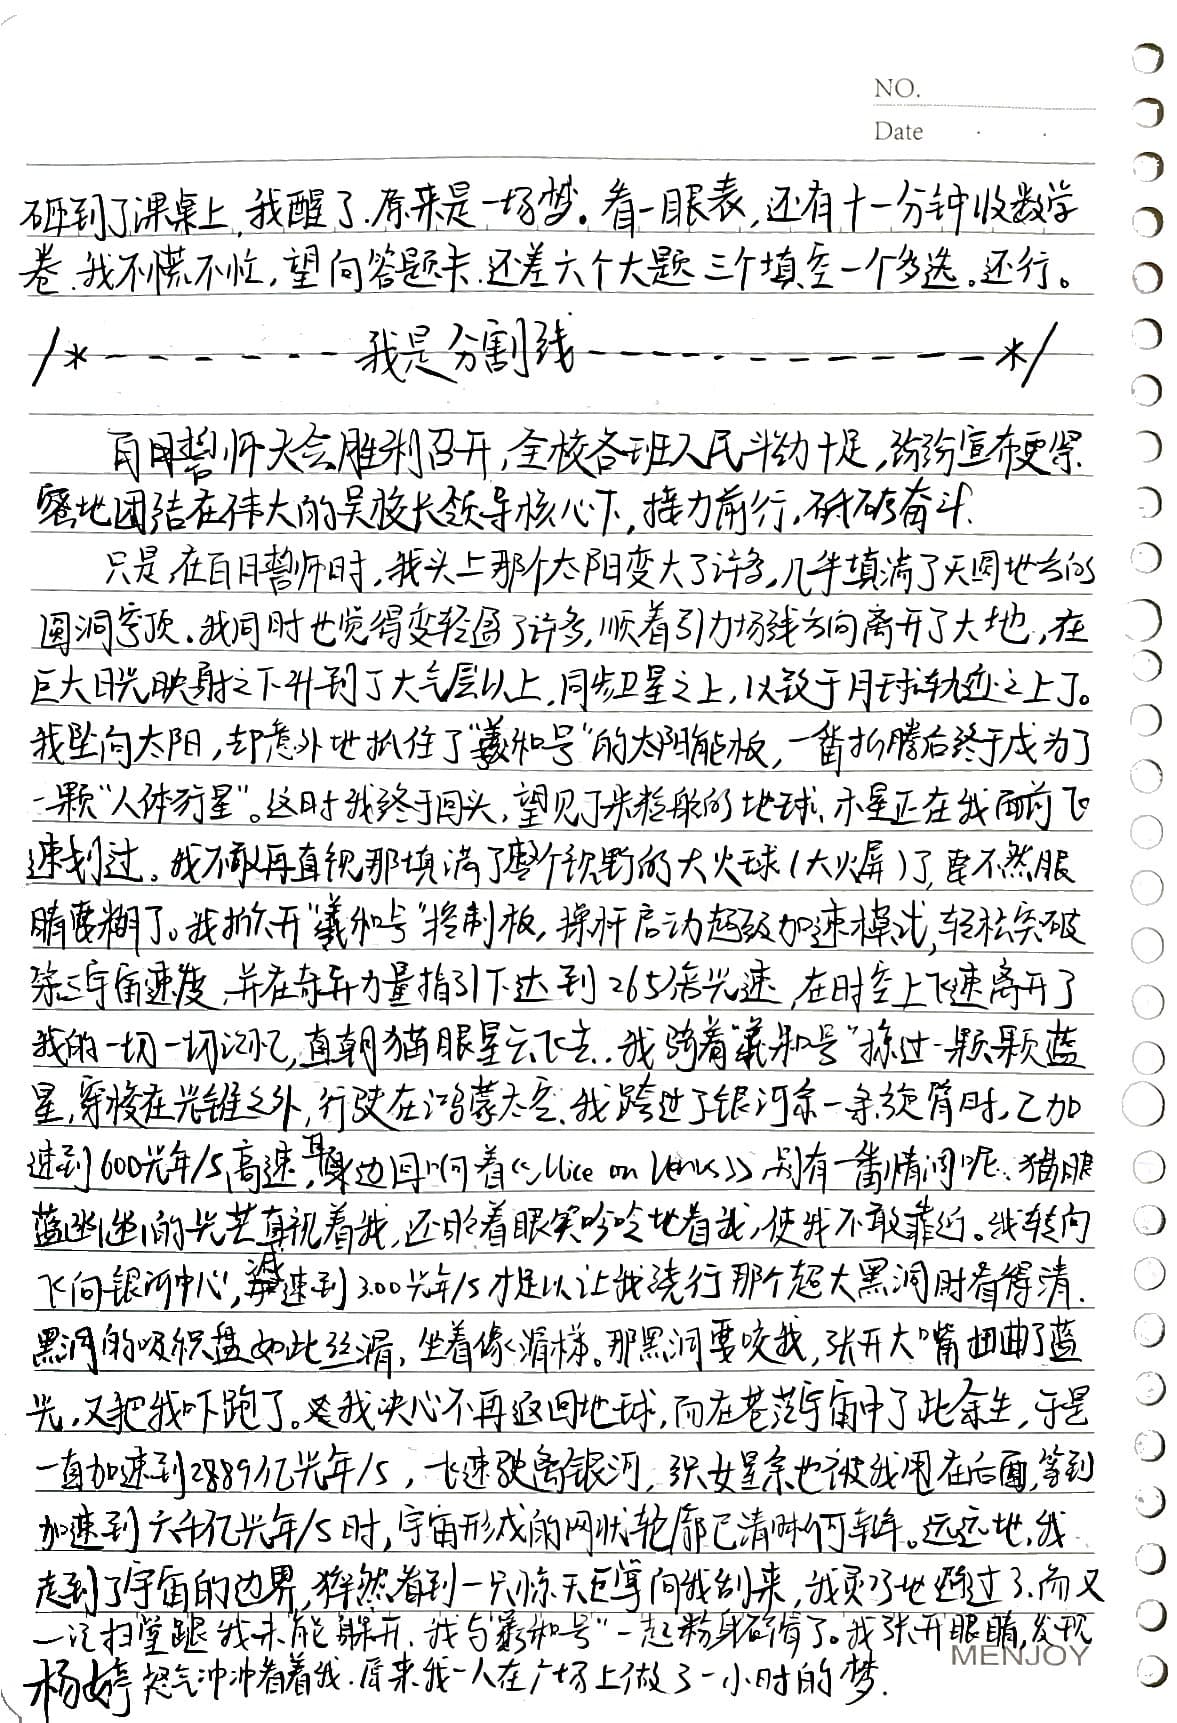 NO.
Date
砸到了课桌上,我醒了.原来是一场梦。看一眼表,还有十一分钟收数学
卷.我不慌不忙,望向答题卡.还差六个大题三个填空一个多选。还行。
/*------我是分割线-------------*/
百日誓师大会胜利召开,全校各班人民斗劲十足,纷纷宣布更紧
密地团结在伟大的吴校长领导核心下,接力前行,砥砺奋斗.
只是,在百日誓师时,我头上那个太阳变大了许多,几乎填满了天圆地方的
圆洞穹顶.我同时也觉得变轻盈了许多,顺着引力场线方向离开了大地,在
巨大日光映射之下升到了大气层以上,同步卫星之上,以致于月球轨迹之上了。
我坠向太阳,却意外地抓住了"羲和号"的太阳能板,一番折腾后终于成为了
一颗"人体行星"。这时我终于回头,望见了米粒般的地球,水星正在我面前飞
速划过。我不敢再直视那填满了整个视野的大火球(大火屏)了,要不然眼
睛要糊了。我掀开"羲和号"控制板,操杆启动超级加速模式,轻松突破
第三宇宙速度,并在奇异力量指引下达到265倍光速,在时空上飞速离开了
我的一切一切记忆,直朝猫眼星云飞去..我骑着"羲和号"掠过一颗颗蓝
星,穿梭在光锥之外,行驶在鸿蒙太空.我跨过了银河系一条旋臂时,已加
速到600光年/s高速,耳边回响着《Mice on Venus》别有一番情调呢.猫眼
蓝幽幽的光芒直视着我,还眯着眼笑吟吟地看我,使我不敢靠近。我转向
飞向银河中心,减速到300光年/s才足以让我绕行那个超大黑洞时看得清.
黑洞的吸积盘如此丝滑,坐着像滑梯。那黑洞要咬我,张开大嘴扭曲了蓝
光,又把我吓跑了。我决心不再返回地球,而在苍茫宇宙中了此余生,于是
一直加速到2889亿光年/s,飞速驶离银河,织女星系也被我甩在后面,等到
加速到六千亿光年/s时,宇宙形成的网状轮廓已清晰可辨。远远地,我
走到了宇宙的边界,猝然看到一只惊天巨掌向我刮来,我灵巧地绕过了.而又
一记扫堂腿我未能躲开.我与"羲和号"一起粉身碎骨了。我张开眼睛,发现
杨婷怒气冲冲看着我.原来我一人在广场上做了一小时的梦.
MENJOY